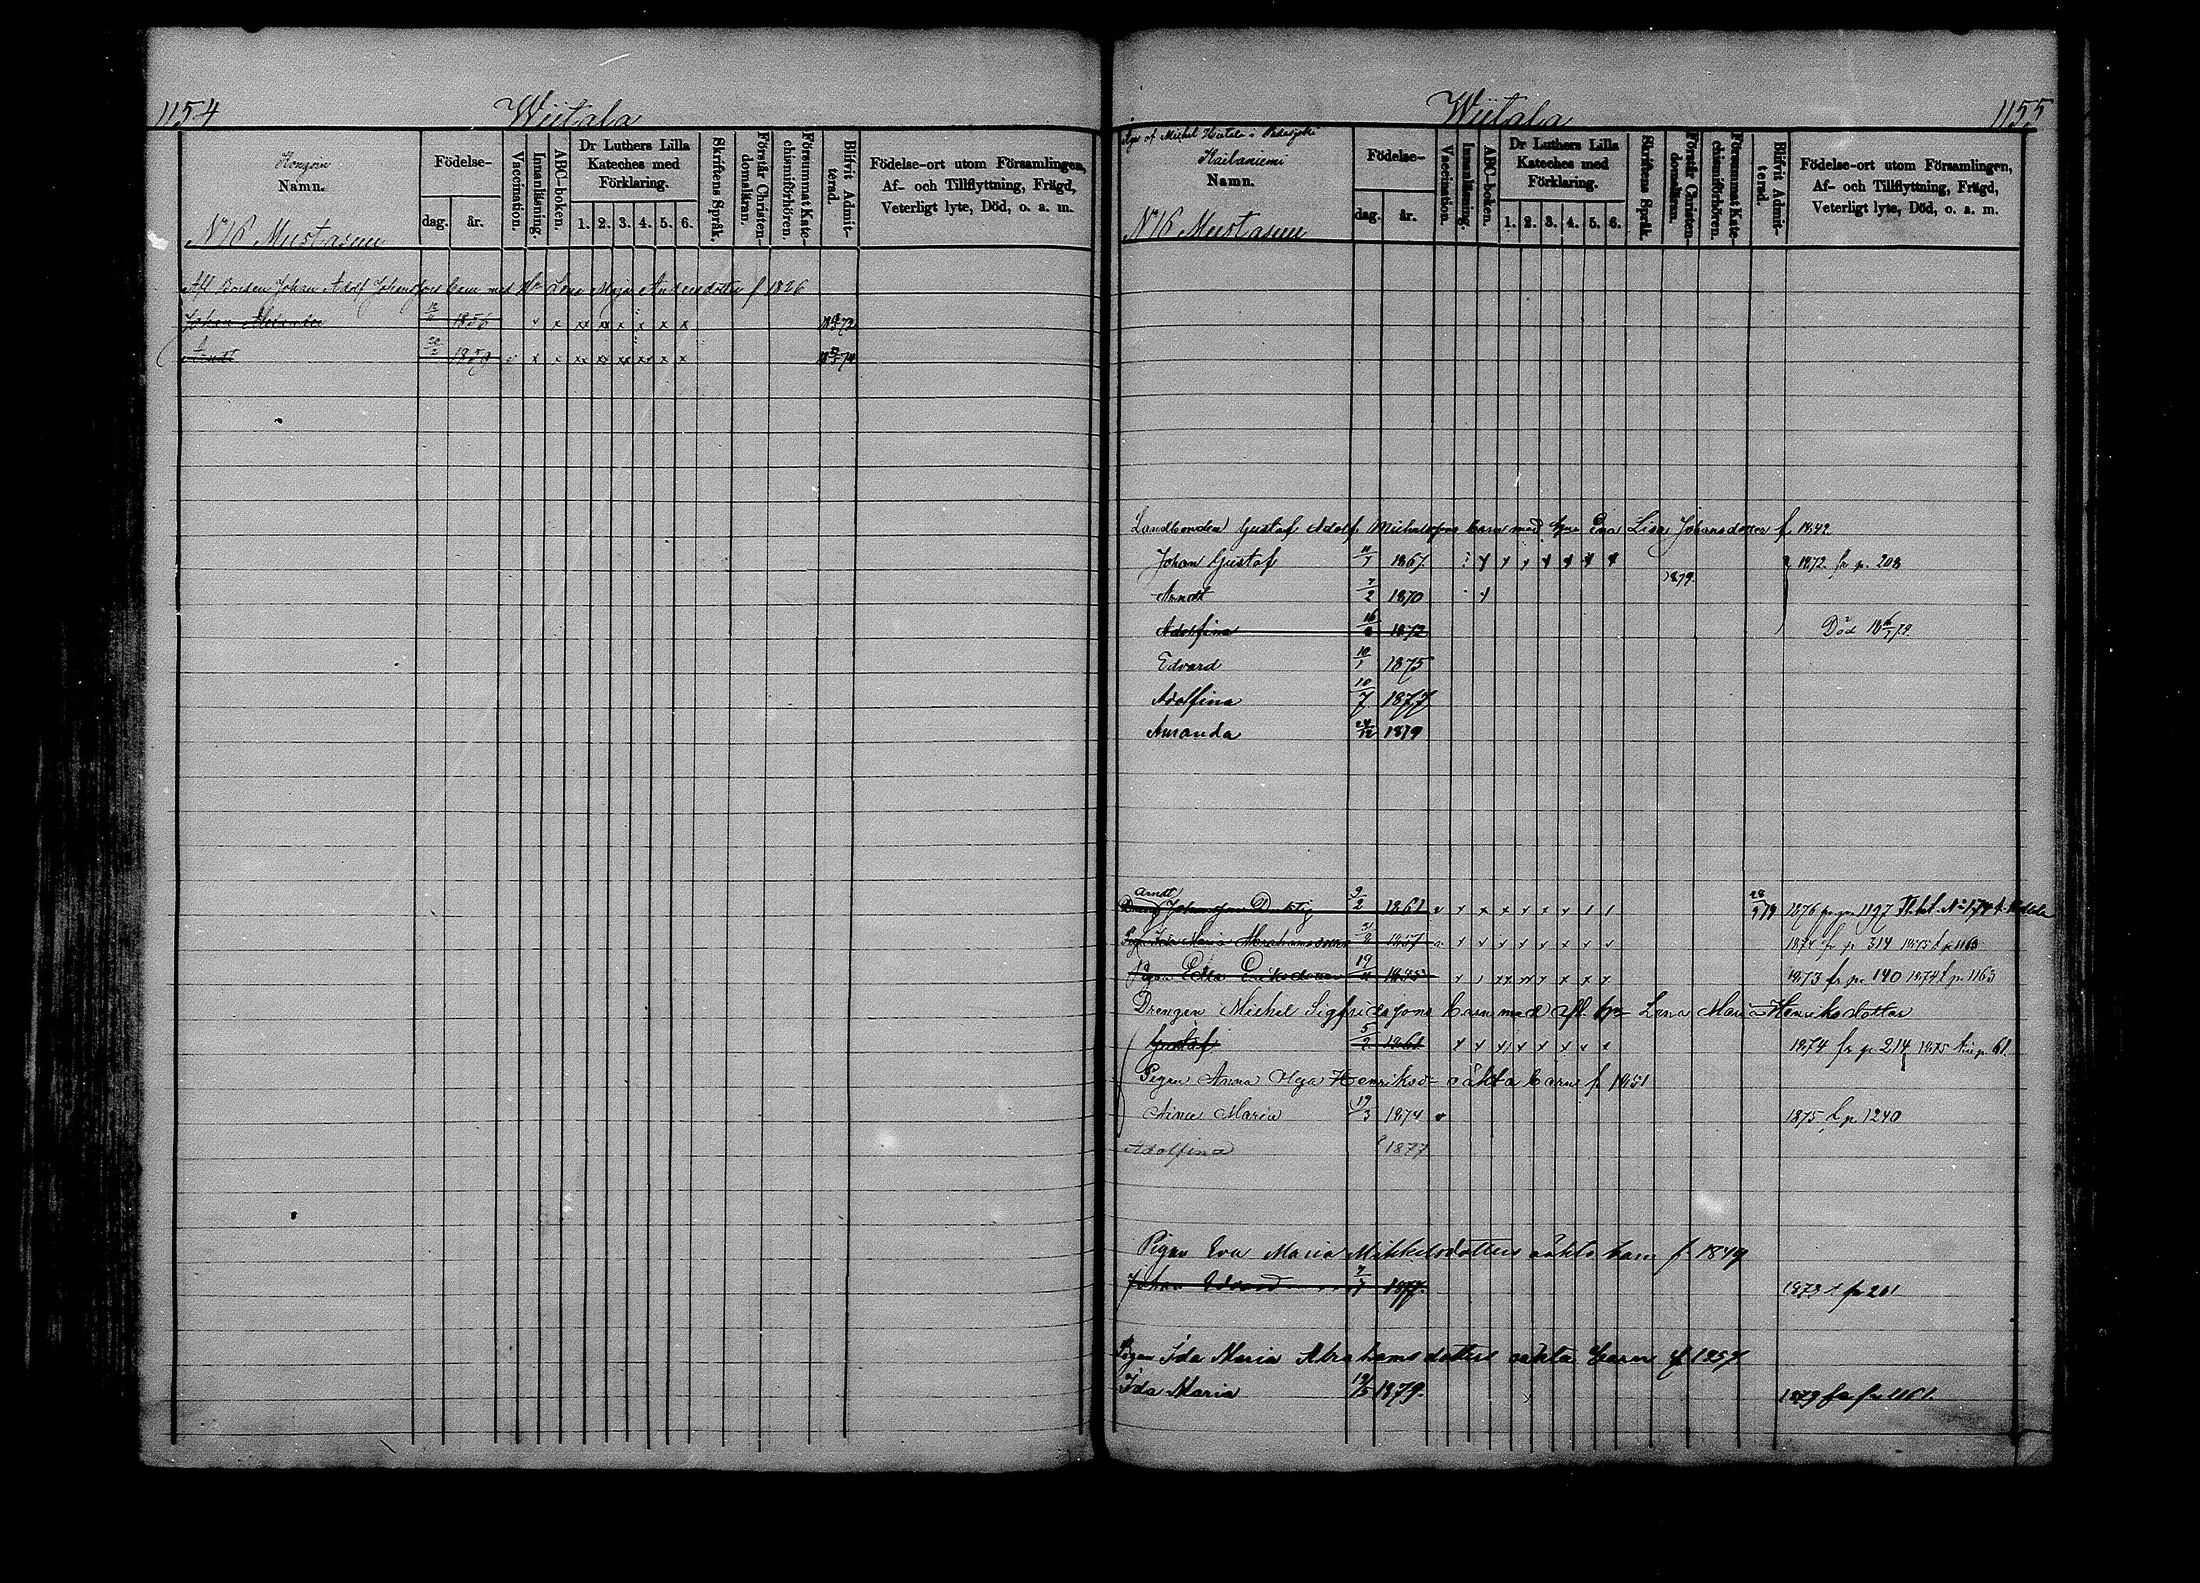 1154 Wiitala
Kongosn
Namn.
Födelse-
dag. år.
Vaccination.
Innanläsning.
ABC-boken.
Dr Luthers Lilla
Kateches med
Förklaring.
1. 2. 3. 4. 5. 6.
Skriftens Språk.
Förstår Christen-
domsläran.
Försummat Kate-
chismiförhören.
Blifvit Admit-
terad.
Födelse-ort utom Församlingen,
Af- och Tillflyttning, Frägd,
Veterligt lyte, Död, o. a. m.
N:o 16 Mustasuu
Afl Johan Adolf barn med Lena Maja Andersdotter f 1826
Johan 1856
Arndt 1859
Wiitala 1155
af Michel i
Kailaniemi
Namn.
Födelse-
dag. år.
Vaccination.
Innanläsning.
ABC-boken.
Dr Luthers Lilla
Kateches med
Förklaring.
1. 2. 3. 4. 5. 6.
Skriftens Språk.
Förstår Christen-
domsläran.
Försummat Kate-
chismiförhören.
Blifvit Admit-
terad.
Födelse-ort utom Församlingen,
Af- och Tillflyttning, Frägd,
Veterligt lyte, Död, o. a. m.
N:o 16 Mustasuu
Landbonden Gustaf Adolf Michelssons barn med hu Eva Lisa Johansdotter f. 1842
Johan Gustaf 1867 1872 fr p. 208
1879
Arndt 7/2 1870
Adolfina 1872 Död
Edvard 10/1 1875
Adolfina 10/7 1877
Amanda 24/12 1879
Arndt
Dreng Johansson 9/2 1861 1876
Pigan Ida Maria Abrahamsdotter 1857 1874 fr p 314 1875 t p 1163
Pigan Edla Eriksdotter 1855 1873 fr p. 140 1874 t p. 1163
Drengen Michel Sigfridssons barn med afl. hu Lena Maria Henriksdotter
Gustaf 1861 1874 fr p 214 1875
Pigan Anna Olga Henriksd- oäkta barn f. 1851
Maria 19/3 1874 1875 t p. 1240
Adolfina 1877
Pigan Eva Maria Mikkelsdotters oäkta barn f 1849
Johan Edvard 1877.
Pigan Ida Maria Abrahamsdotters oäkta barn f 1857
Ida Maria 1879. 1879 fr p. 1161.